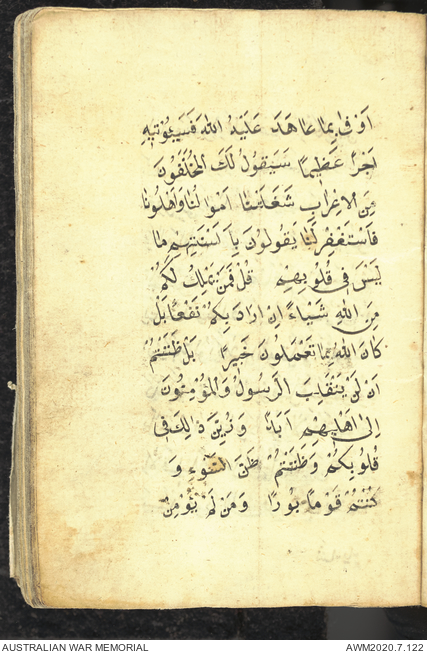 اَوْفٰى بِمَا عَاهَدَ عَلَيْهُ اللهَ فَسَيُؤْتِيهِ
اَجْرًا عَظِيمًا سَيَقُولُ لَكَ الْمُخَلَّفُونَ
مِنَ الْاَعْرَابِ شَغَلَتْنَا اَمْوَالُنَا وَاَهْلُونَا
فَاسْتَغْفِرْ لَنَا يَقُولُونَ بِاَلْسِنَتِهِمْ مَا
لَيْسَ فِى قُلُوبِهِمْ قُلْ فَمَنْ يَمْلِكُ لَكُمْ
مِنَ اللهِ شَيْاءً اِنْ اَرَادَ بِكُمْ نَفْعًا بَلْ
كَانَ اللهُ بِمَا تَعْمَلُونَ خَبِيرًا بَلْ ظَنَنْتُمْ
اَنْ لَنْ يَنْقَلِبَ الرَّسُولُ وَالْمُؤْمِنُونَ
اِلٰى اَهْلِيهِمْ اَبَدًا وَزُيِّنَ ذٰلِكَ فِى
قُلُوبِكُمْ وَظَنَنْتُمْ ظَنَّ السَّوْءِ وَ
كُنْتُمْ قَوْمًا بُورًا وَمَنْ لَمْ يُؤْمِنْ
AUSTRALIAN WAR MEMORIAL
AWM2020.7.122